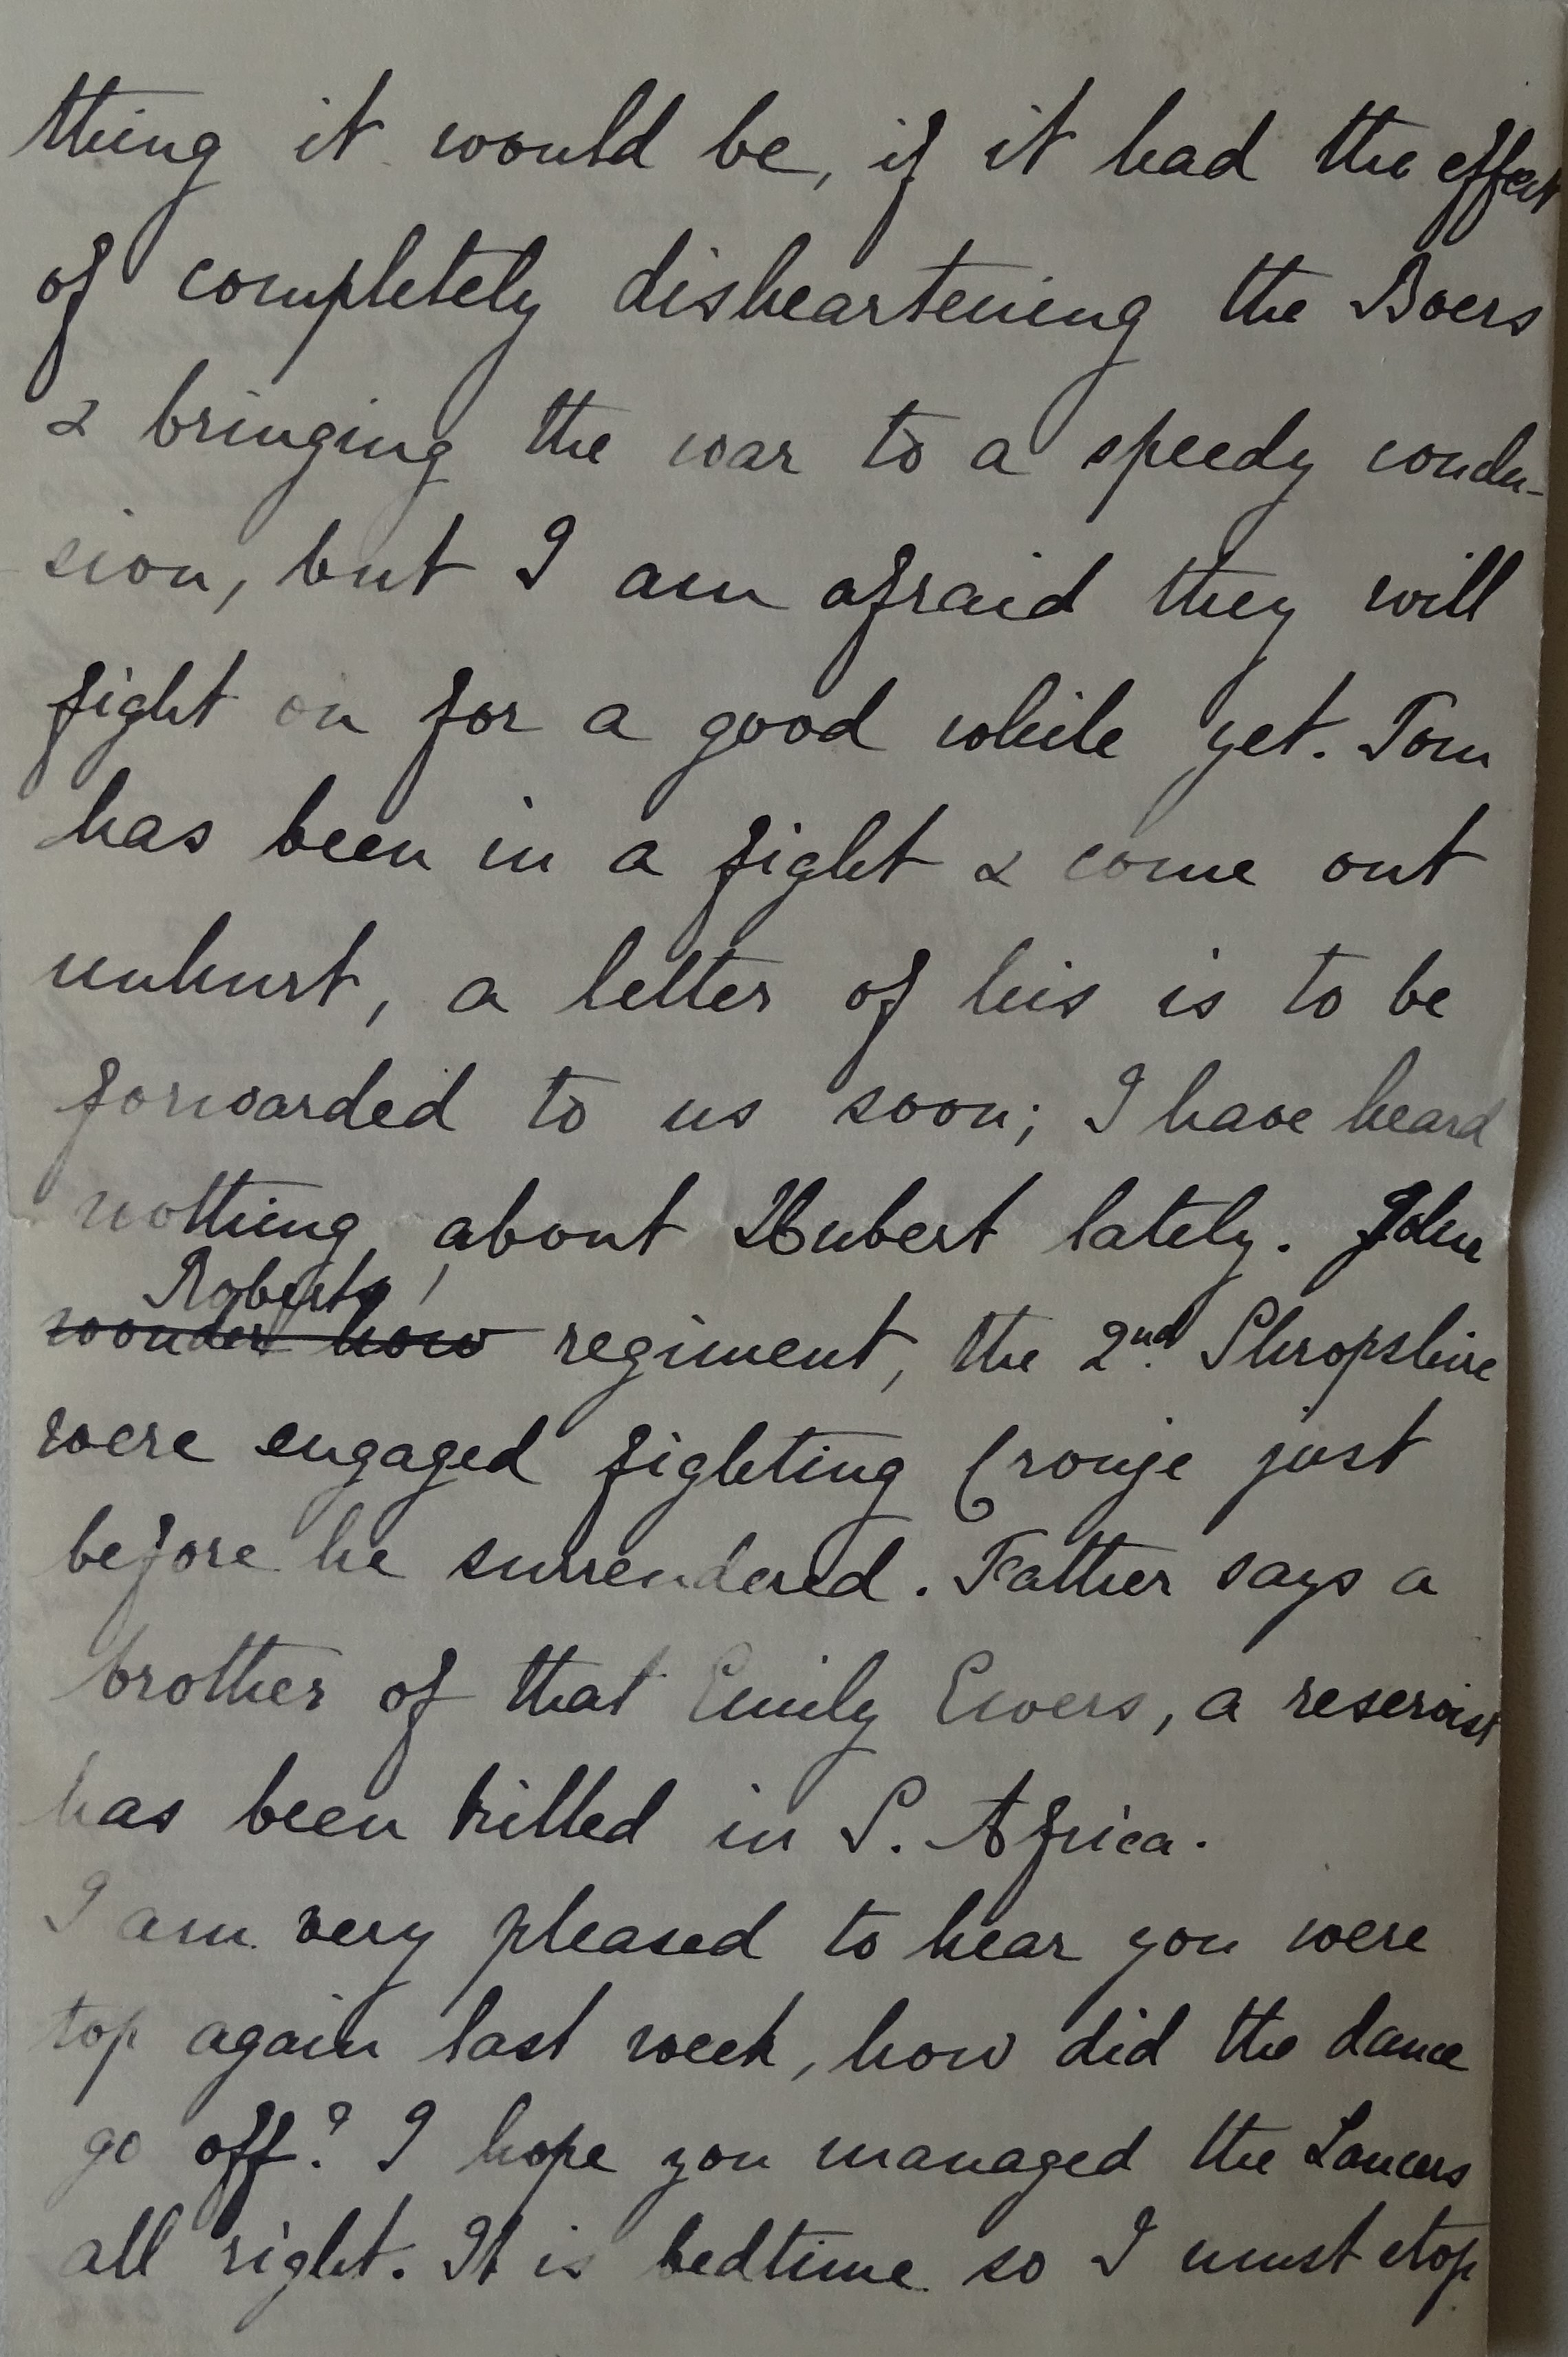 thing it would be, if it had the effect
of completely disheartening the Boers
& bringing the war to a speedy conclu-
sion, but I am afraid they will
fight on for a good while yet. Tom
has been in a fight & come out
unhurt, a letter of his is to be
forwarded to us soon; I have heard
nothing about Hubert lately. John
Roberts'
wonder how regiment, the 2nd. Shropshire
were engaged fighting Cronje just
before he surrendered. Father says a
brother of that Emily Ewers, a reservist
has been killed in S. Africa.
I am very pleased to hear you were
top again last week, how did the dance
go off? I hope you managed the Lancers
all right. It is bedtime so I must stop